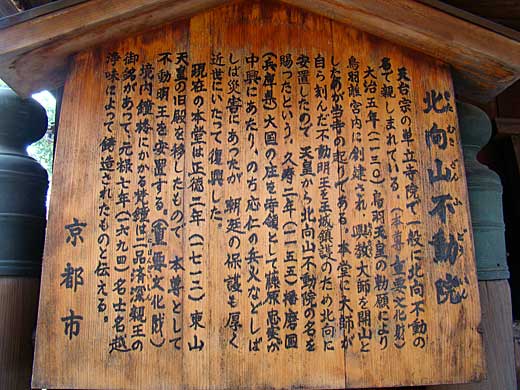 北向山不動院
きたむきざんふどういん
天台宗の単立寺院で一般に北向不動の
名で親しまれている。(本尊・重要文化財)
大治五年(一一三〇)鳥羽天皇の勅願により
鳥羽離宮内に創建され、興教大師を開山と
したのが当寺の起りである。本堂に大師が
自ら刻んだ不動明王を王城鎮護のため北向に
安置したので天皇から北向山不動院の名を
賜ったという。久寿二年(一一五五)播磨国
(兵庫県)大国の庄を寺領として藤原忠実が
中興にあたり、のち応仁の兵火などしば
しば災害にあったが、朝廷の保護も厚く
近世にいたって復興した。
現在の本堂は正徳二年(一七一二)東山
天皇の旧殿を移したもので、本尊として
不動明王を安置する。(重要文化財)
境内鐘楼にかかる梵鐘は二品済深親王の
御銘があって、元禄七年(一六九四)名士名越
浄味によって鋳造されたものと伝える。
京都市